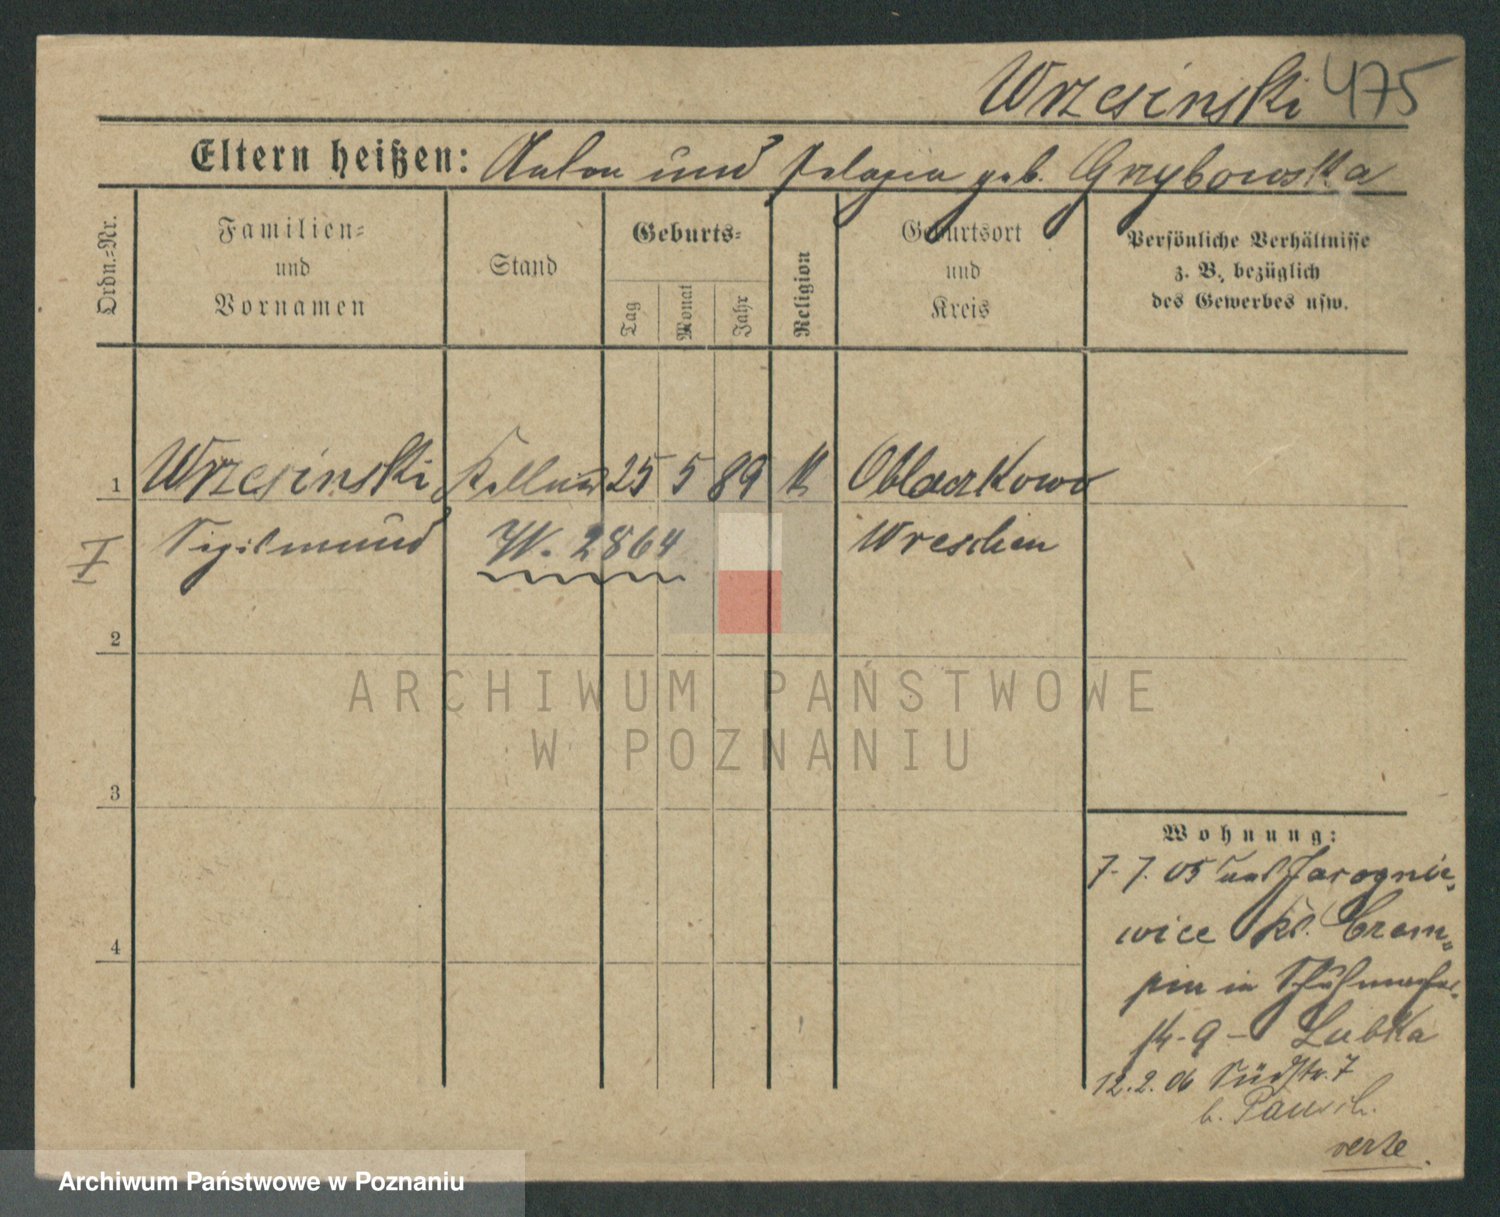 Wrzesinski 475
Eltern heißen: Anton und Pelagia geb. Grzybowska
Ordn.-Nr.
Familien-
und
Vornamen
Stand
Geburts-
Tag
Monat
Jahr
Religion
Geburtsort
und
Kreis
Persönliche Verhältnisse
z. B. bezüglich
des Gewerbes usw.
1 Wrzesinski, Kellner 25 5 89 k Obłaczkowo
I Sigismund W. 2864 Wreschen
2
3
4
ARCHIWUM PAŃSTWOWE
W POZNANIU
Wohnung:
7.7.05 Jarognie-
wice Kr.
in Schuhmacher-
14-9- Lubka
12.2.06 Südstr. 7
b.
verte
Archiwum Państwowe w Poznaniu